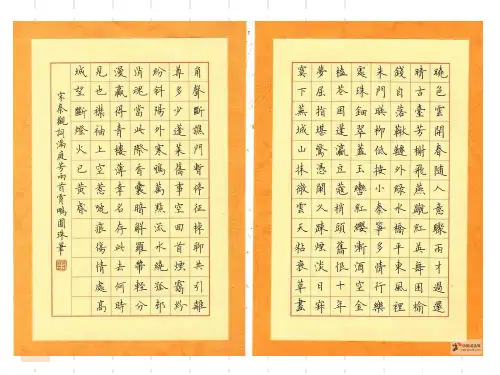 曉色雲開春隨人意驟雨才過還
晴古臺芳榭飛燕蹴紅英舞困榆
錢自落鞦韆外綠水橋平東風裡
朱門映柳低按小秦箏多情行樂
處珠鈿翠蓋玉轡紅纓漸酒空金
榼花困蓬瀛豆蔻梢頭舊恨十年
夢屈指堪驚憑闌久疎煙淡日寂
寞下蕪城山抹微雲天粘衰草畫
角聲斷譙門暫停征棹聊共引離
尊多少蓬萊舊事空回首煙靄紛
紛斜陽外寒鴉萬點流水繞孤邨
消魂當此際香囊暗解羅帶輕分
漫贏得青樓薄幸名存此去何時
見也襟袖上空惹啼痕傷情處高
城望斷燈火已黃昏
宋秦觀詞滿庭芳兩首